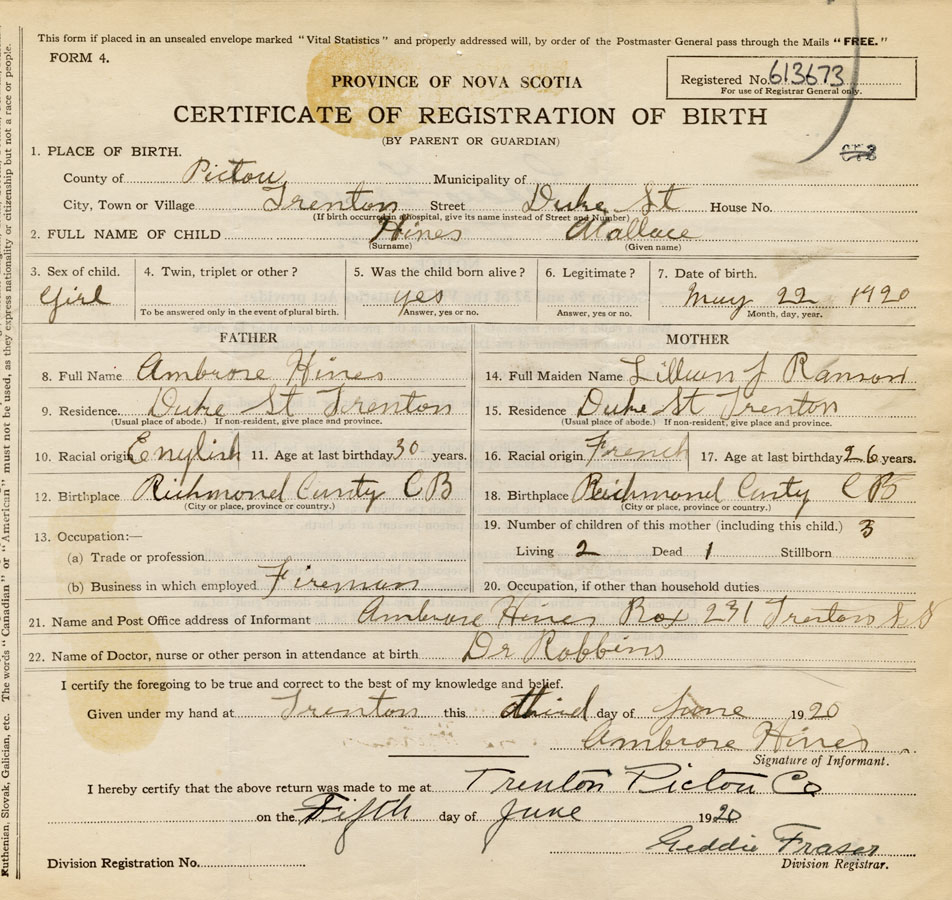 This form if placed in an unsealed envelope marked "Vital Statistics" and properly addressed will, by order of the Postmaster General pass through the Mails "FREE."
FORM 4.
PROVINCE OF NOVA SCOTIA
Registered No. 613673
For use of Registrar General only.
CERTIFICATE OF REGISTRATION OF BIRTH
(BY PARENT OR GUARDIAN)
1. PLACE OF BIRTH.
County of Pictou Municipality of
City, Town or Village Trenton Street Duke St House No.
(If birth occurred in a hospital, give its name instead of Street and Number)
2. FULL NAME OF CHILD Hines Wallace
(Surname) (Given name)
3. Sex of child. 4. Twin, triplet or other? 5. Was the child born alive? 6. Legitimate? 7. Date of birth.
Girl yes May 22 1920
To be answered only in the event of plural birth. Answer, yes or no. Answer, yes or no. Month, day, year.
FATHER MOTHER
8. Full Name Ambrose Hines 14. Full Maiden Name Lillian J Ranson
9. Residence Duke St Trenton 15. Residence Duke St Trenton
(Usual place of abode.) If non-resident, give place and province. (Usual place of abode.) If non-resident, give place and province.
10. Racial origin English 11. Age at last birthday 30 years. 16. Racial origin French 17. Age at last birthday 26 years.
12. Birthplace Richmond County C B 18. Birthplace Reichmond Conty C B
(City or place, province or country.) (City or place, province or country.)
13. Occupation:— 19. Number of children of this mother (including this child.) 3
(a) Trade or profession Living 2 Dead 1 Stillborn
(b) Business in which employed Fireman 20. Occupation, if other than household duties
21. Name and Post Office address of Informant Ambrose Hines Box 231 Trenton N S
22. Name of Doctor, nurse or other person in attendance at birth Dr Robbins
I certify the foregoing to be true and correct to the best of my knowledge and belief.
Given under my hand at Trenton this third day of June 1920
Ambrose Hines
Signature of Informant.
I hereby certify that the above return was made to me at Trenton Pictou Co
on the Fifth day of June 1920
Geddie Fraser
Division Registrar No. Division Registrar.
Ruthenian, Slovak, Galician, etc. The words "Canadian" or "American" must not be used, as they express nationality or citizenship but not a race or people.